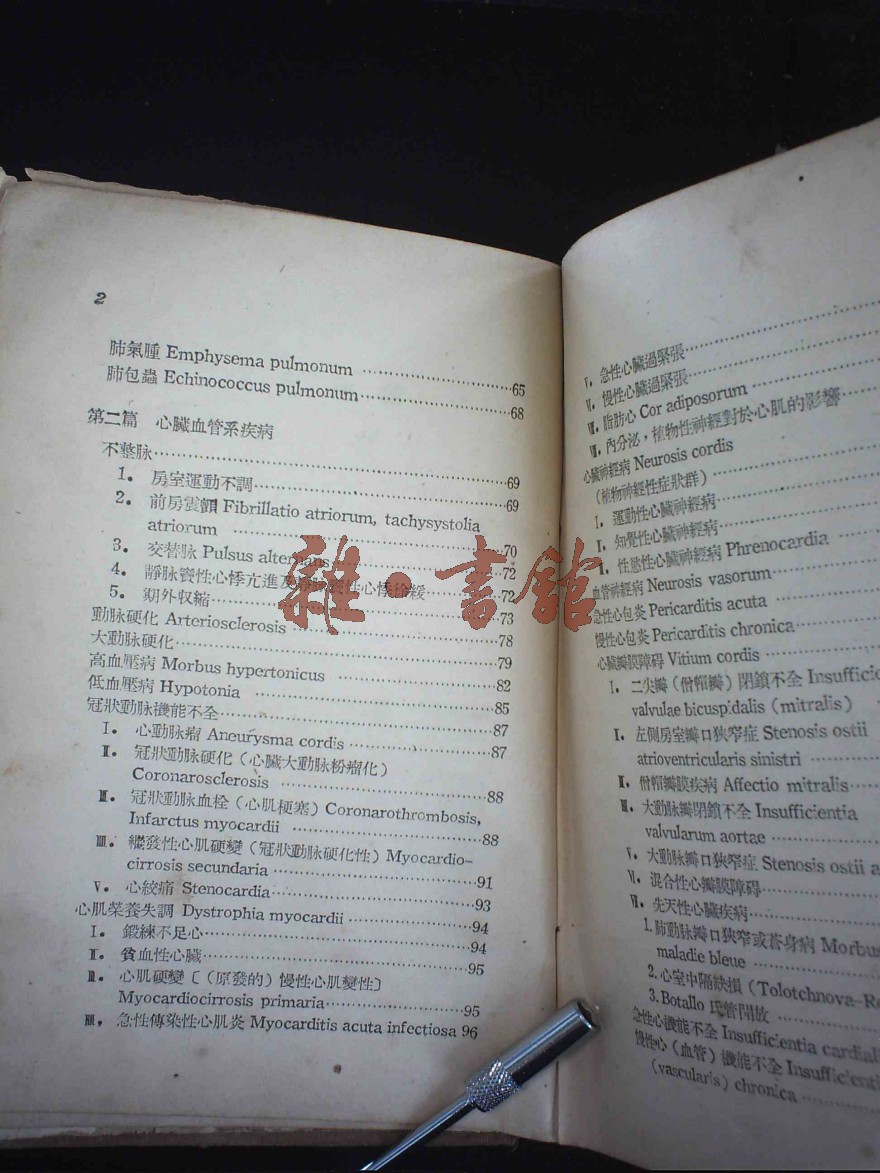 2
肺氣腫 Emphysema pulmonum ……65
肺包蟲 Echinococcus pulmonum……68
第二篇 心臟血管系疾病
不整脉……69
1. 房室運動不調……69
2. 前房震顫 Fibrillatio atriorum, tachysystolia
atriorum ……70
3. 交替脉 Pulsus alternans……72
4. 靜脉竇性心悸亢進及靜脉竇性心悸徐緩……72
5. 期外收縮……73
動脉硬化 Arteriosclerosis……78
大動脉硬化……79
高血壓病 Morbus hypertonicus ……82
低血壓病 Hypotonia ……85
冠狀動脉機能不全……87
I. 心動脉瘤 Aneurysma cordis……87
II. 冠狀動脉硬化(心臟大動脉粉瘤化)
Coronarosclerosis ……88
II. 冠狀動脉血栓(心肌梗塞) Coronarothrombosis,
Infarctus myocardii ……88
III. 繼發性心肌硬變(冠狀動脉硬化性) Myocardio-
cirrosis secundaria……91
V. 心絞痛 Stenocardia……93
心肌榮養失調 Dystrophia myocardii……94
I. 鍛練不足心……94
I. 貧血性心臟……95
II. 心肌硬變〔(原發的)慢性心肌變性〕
Myocardiocirrosis primaria……95
III. 急性傳染性心肌炎 Myocarditis acuta infectiosa 96
V. 急性心臟過緊張……
V. 慢性心臟過緊張……
VII. 脂肪心 Cor adiposorum……
VII. 內分泌,植物性神經對於心肌的影響……
心臟神經病 Neurosis cordis
(植物神經性症狀群)……
I. 運動性心臟神經病……
I. 知覺性心臟神經病……
II. 性慾性心臟神經病 Phrenocardia……
血管神經病 Neurosis vasorum……
急性心包炎 Pericarditis acuta……
慢性心包炎 Pericarditis chronica……
心臟瓣膜障碍 Vitium cordis……
I. 二尖瓣(僧帽瓣)閉鎖不全 Insuffici
valvulae bicuspidalis (mitralis)
I. 左側房室瓣口狹窄症 Stenosis ostii
atrioventricularis sinistri……
II. 僧帽瓣膜疾病 Affectio mitralis……
III. 大動脉瓣閉鎖不全 Insufficientia
valvularum aortae……
V. 大動脉瓣口狹窄症 Stenosis ostii a
VI. 混合性心瓣膜障碍……
VII. 先天性心臟疾病……
1. 肺動脉瓣口狹窄或蒼身病 Morbus
maladie bleue……
2. 心室中隔缺損 (Tolotchnova-Ro
3. Botallo 氏管開放……
急性心機能不全 Insufficientia cardial
慢性心(血管)機能不全 Insufficienti
(vascularis) chronica……
雜·書館